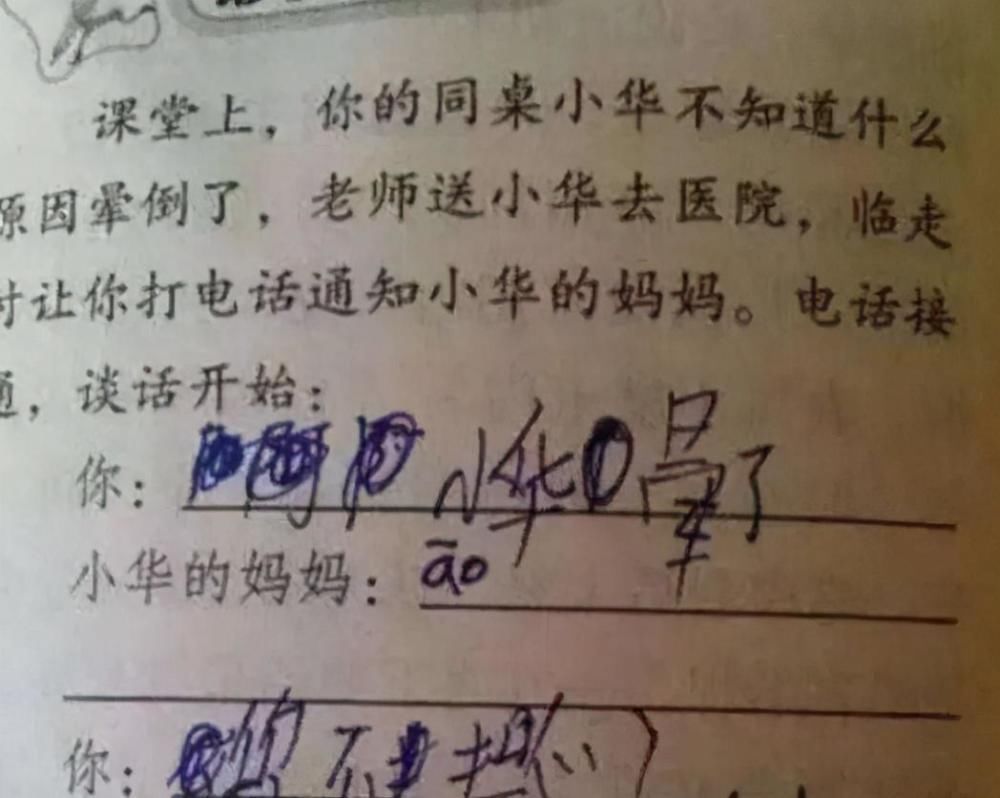 课堂上，你的同桌小华不知道什么
原因晕倒了，老师送小华去医院，临走
时让你打电话通知小华的妈妈。电话接
通，谈话开始：
你：小华晕了
小华的妈妈：āo
你：不